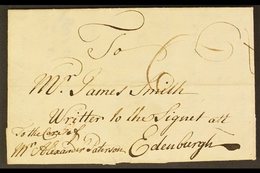 To
Mr James Smith
Writter to the Signet att
Edenburgh
To the Care of
Mr Alexander Paterson